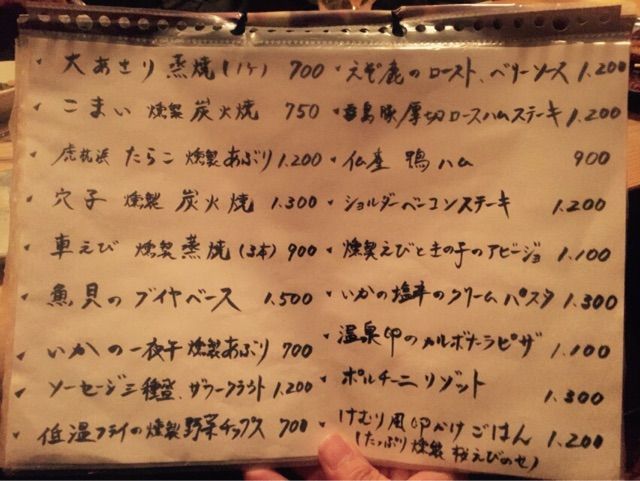 大あさり 蒸焼(1ヶ) 700
こまい 燻製 炭火焼 750
虎杖浜 たらこ 燻製あぶり 1.200
穴子 燻製 炭火焼 1.300
車えび 燻製蒸焼(3本) 900
魚貝のブイヤベース 1.500
いかの一夜干燻製あぶり 700
ソーセージ三種盛、ザワークラウト 1.200
低温フライの燻製野菜チップス 700
えぞ鹿のロースト、ベリーソース 1.200
豚厚切ロースハムステーキ 1.200
仏産 鴨ハム 900
ショルダーベーコンステーキ 1.200
燻製えびときの子のアヒージョ 1.100
いかの塩辛のクリームパスタ 1.300
温泉卵のカルボナーラピザ 1.100
ポルチーニリゾット 1.300
けむり風卵かけごはん 1.200
(たっぷり燻製 桜えびのせ)